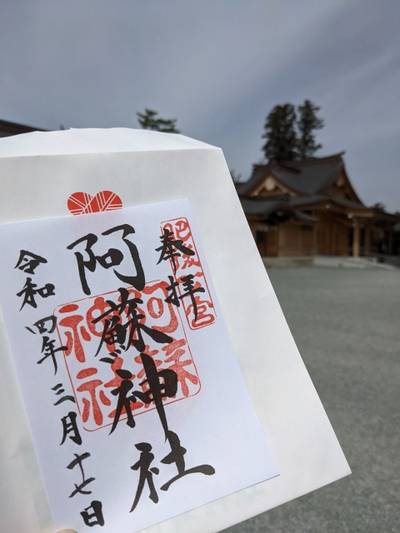 奉拝
肥後一宮
阿蘇神社
阿蘇神社
令和四年三月十七日